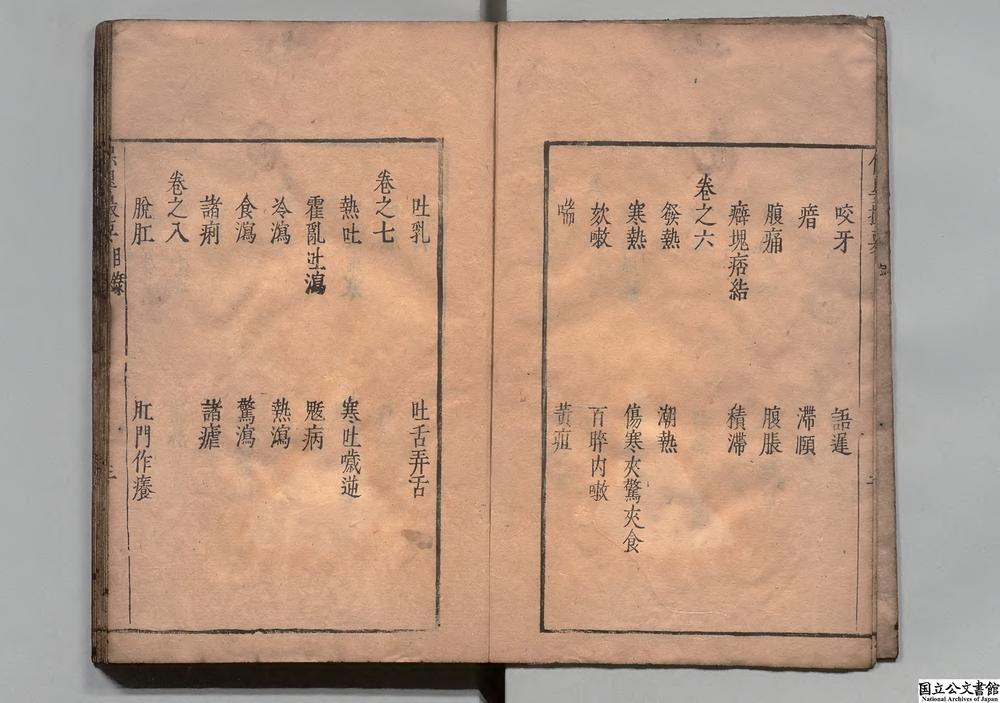 咬牙　語遲
瘖　滯頤
腹痛　腹脹
癖塊痞結　積滯
卷之六
發熱　潮熱
寒熱　傷寒夾驚夾食
欬嗽　百晬內嗽
喘　黃疸
吐乳　吐舌弄舌
卷之七
熱吐　寒吐噦逆
霍亂吐瀉
冷瀉　熱瀉
食瀉　驚瀉
諸痢　諸瘧
卷之八
脫肛　肛門作癢
目錄
国立公文書館
National Archives of Japan